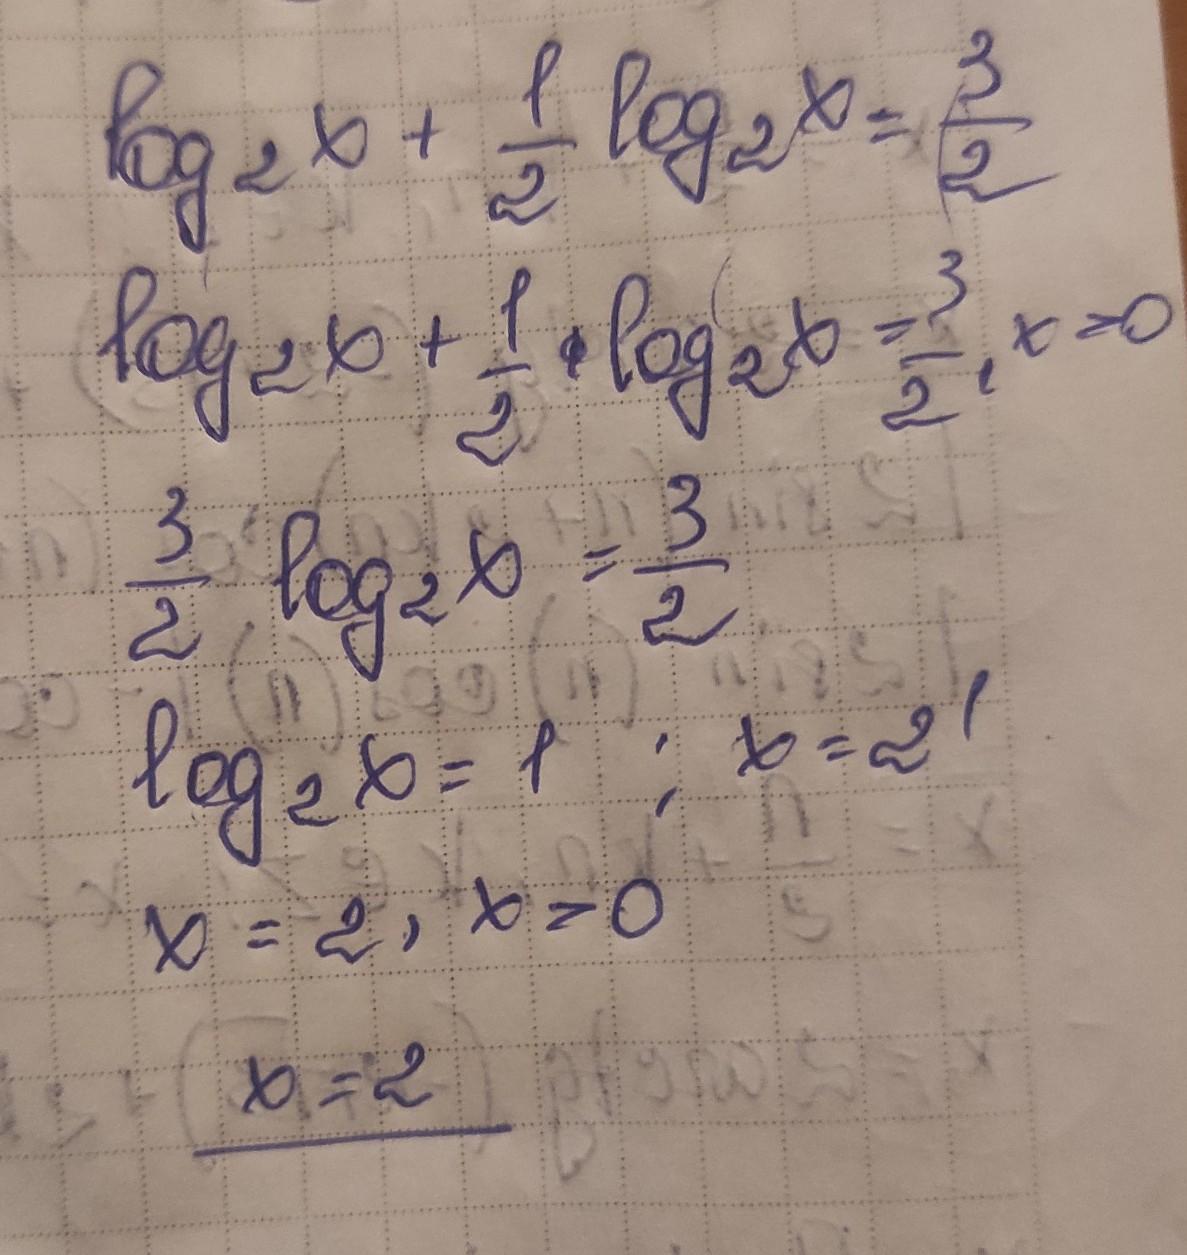 log₂x + 1/2 log₂x = 3/2
log₂x + 1/2 · log₂x = 3/2, x > 0
3/2 log₂x = 3/2
log₂x = 1 ; x = 2¹
x = 2, x > 0
x = 2